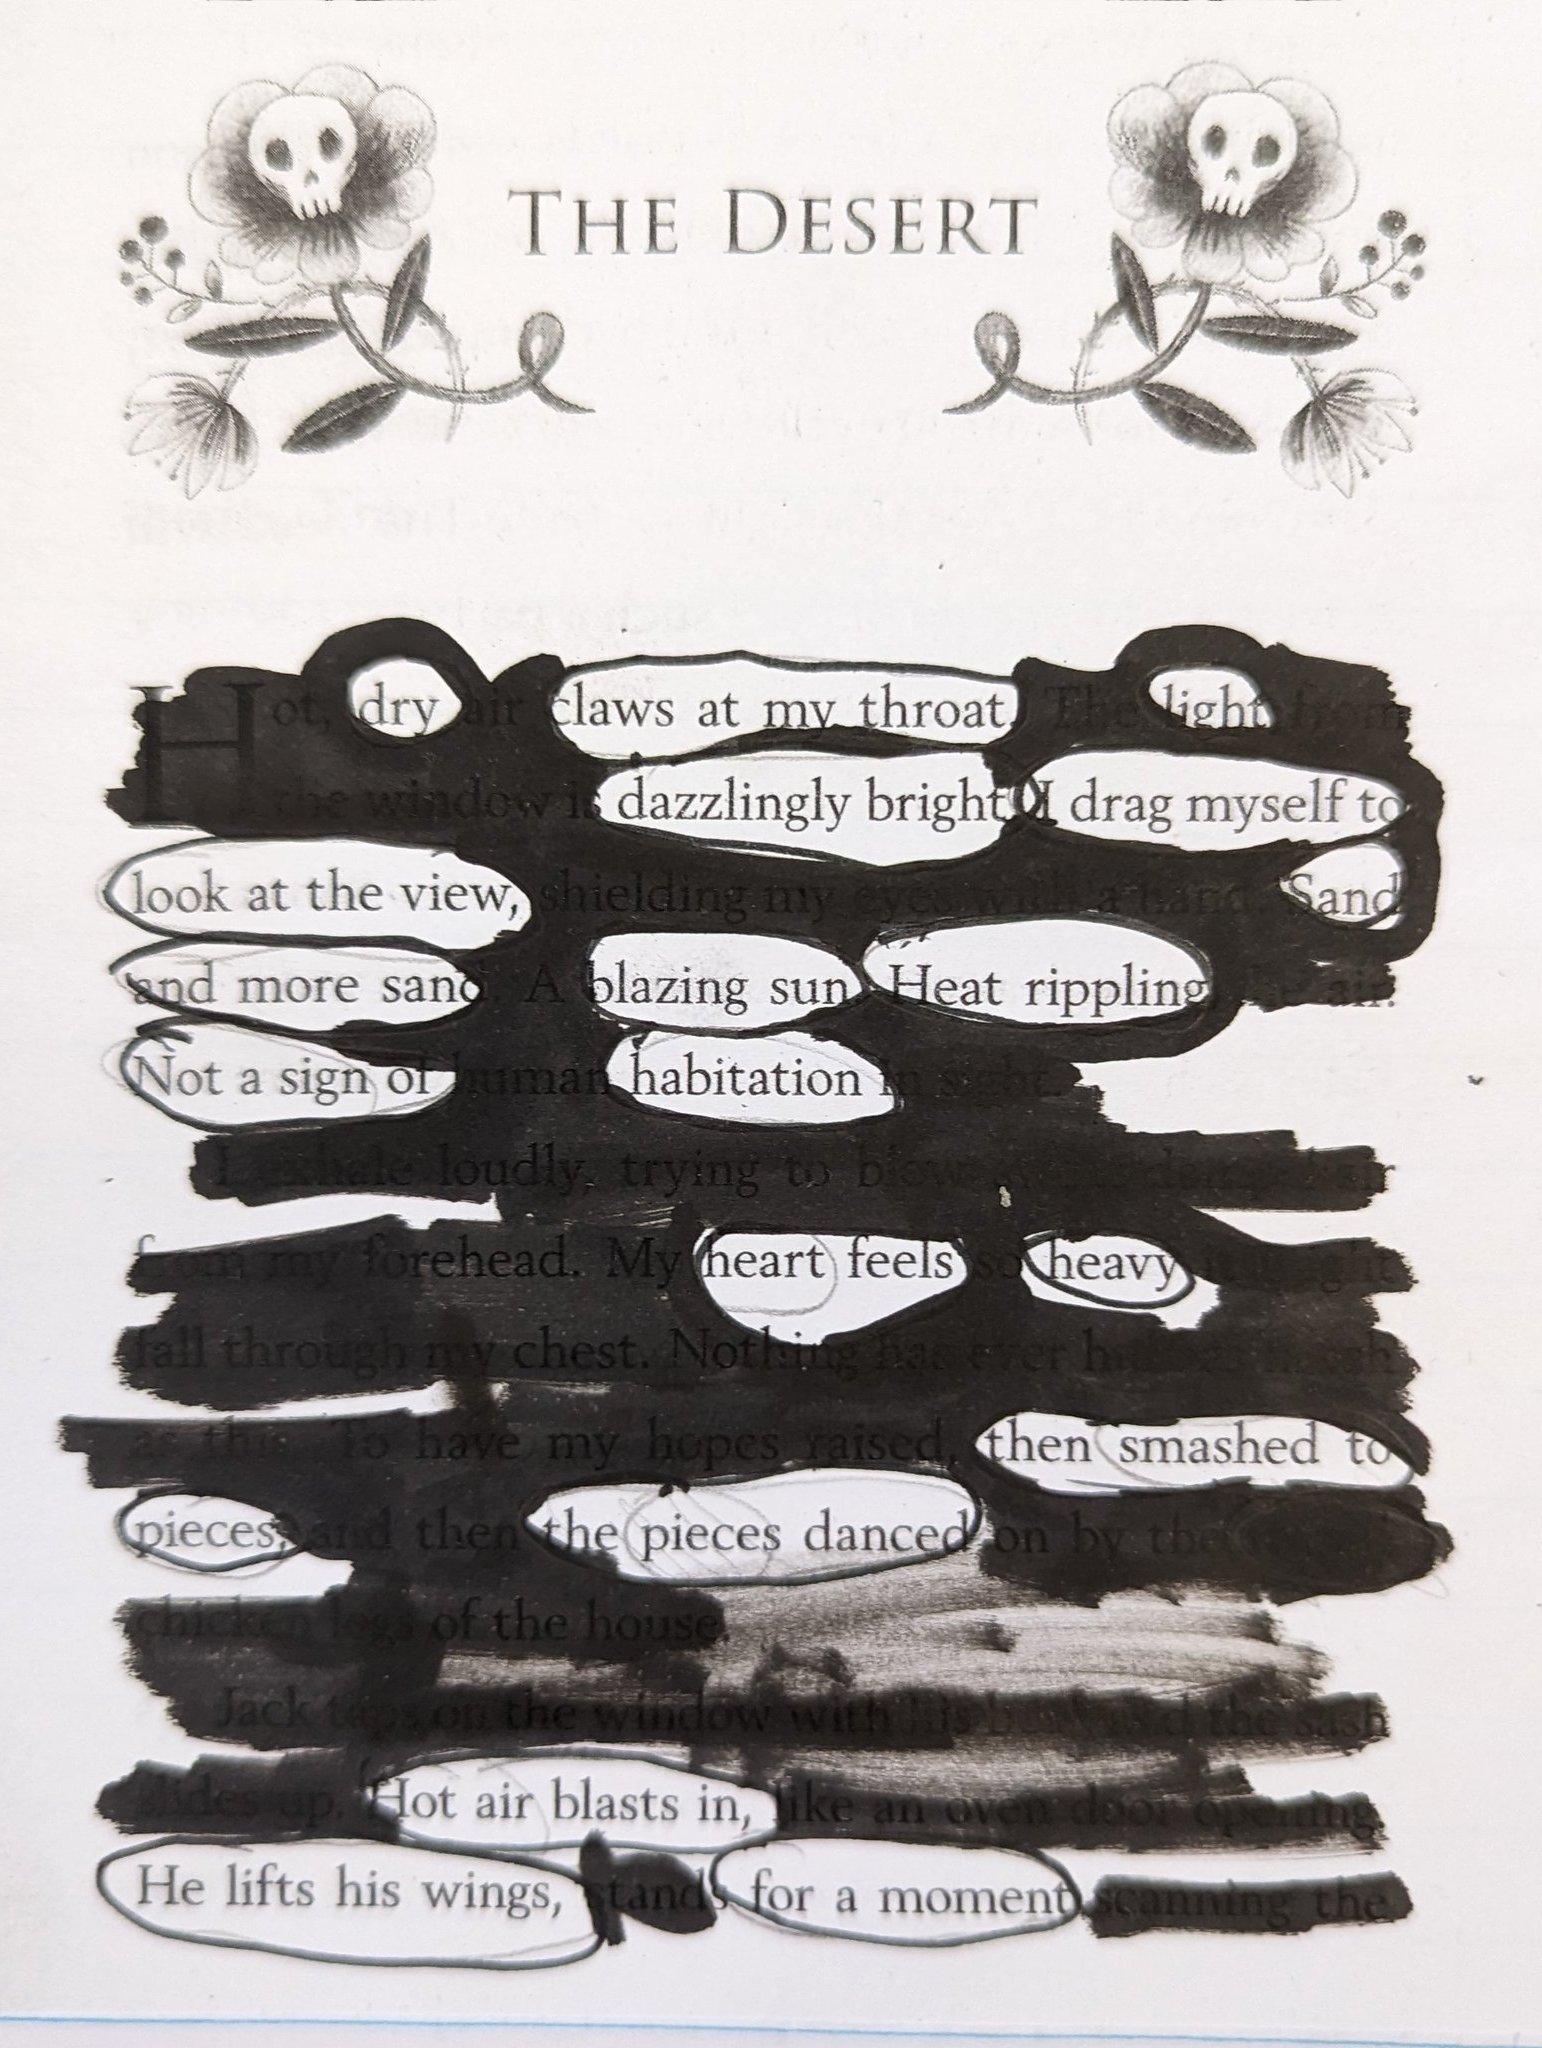 THE DESERT
Hot, dry air claws at my throat. The light from
the window is dazzlingly bright. I drag myself to
look at the view, shielding my eyes with a hand. Sand
and more sand. A blazing sun. Heat rippling the air.
Not a sign of human habitation in sight.
I exhale loudly, trying to blow damp hair
from my forehead. My heart feels so heavy it might
fall through my chest. Nothing has ever
as this. To have my hopes raised, then smashed to
pieces, and then the pieces danced on by the
chicken legs of the house.
Jack taps on the window with his beak and the sash
slides up. Hot air blasts in, like an oven door opening.
He lifts his wings, stands for a moment scanning the